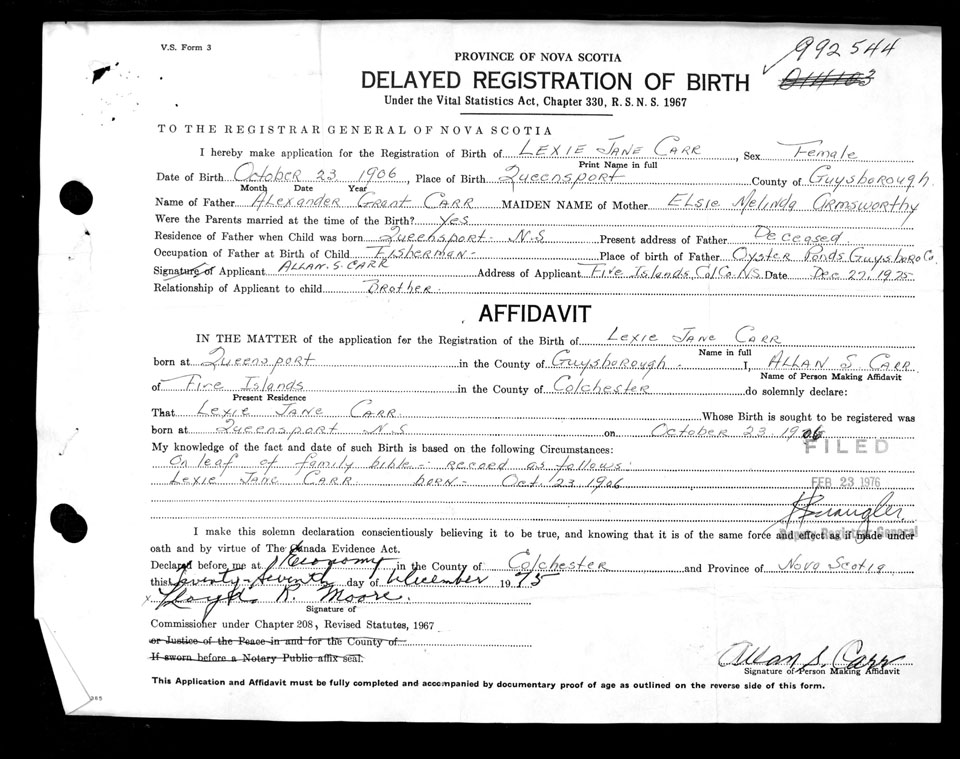 V.S. Form 3
992544
PROVINCE OF NOVA SCOTIA
DELAYED REGISTRATION OF BIRTH
Under the Vital Statistics Act, Chapter 330, R.S.N.S. 1967
TO THE REGISTRAR GENERAL OF NOVA SCOTIA
I hereby make application for the Registration of Birth of LEXIE JANE CARR, Sex Female
Print Name in full
Date of Birth October 23 1906, Place of Birth Queensport County of Guysborough
Month Date Year
Name of Father Alexander Grant Carr MAIDEN NAME of Mother Elsie Melinda Armsworthy
Were the Parents married at the time of the Birth? Yes
Residence of Father when Child was born Queensport N.S Present address of Father Deceased
Occupation of Father at Birth of Child Fisherman Place of birth of Father Oyster Ponds Guysboro Co.
Signature of Applicant ALLAN. S. CARR Address of Applicant Five Islands, Col. Co. N.S. Date Dec 27, 1975
Relationship of Applicant to child Brother
AFFIDAVIT
IN THE MATTER of the application for the Registration of the Birth of Lexie Jane Carr
Name in full
born at Queensport in the County of Guysborough I, ALLAN S CARR
Name of Person Making Affidavit
of Five Islands in the County of Colchester do solemnly declare:
Present Residence
That Lexie Jane Carr Whose Birth is sought to be registered was
born at Queensport N.S on October 23 1906
My knowledge of the fact and date of such Birth is based on the following Circumstances:
FILED
On leaf of family bible - record as follows:
Lexie Jane Carr born - Oct 23 1906
FEB 23 1976
Deputy Registrar General
I make this solemn declaration conscientiously believing it to be true, and knowing that it is of the same force and effect as if made under
oath and by virtue of The Canada Evidence Act.
Declared before me at Economy in the County of Colchester and Province of Nova Scotia
this Twenty-Seventh day of December 1975
x Lloyd R. Moore.
Signature of
Commissioner under Chapter 208, Revised Statutes, 1967
or Justice of the Peace in and for the County of
If sworn before a Notary Public affix seal.
Allan S. Carr
Signature of Person Making Affidavit
This Application and Affidavit must be fully completed and accompanied by documentary proof of age as outlined on the reverse side of this form.